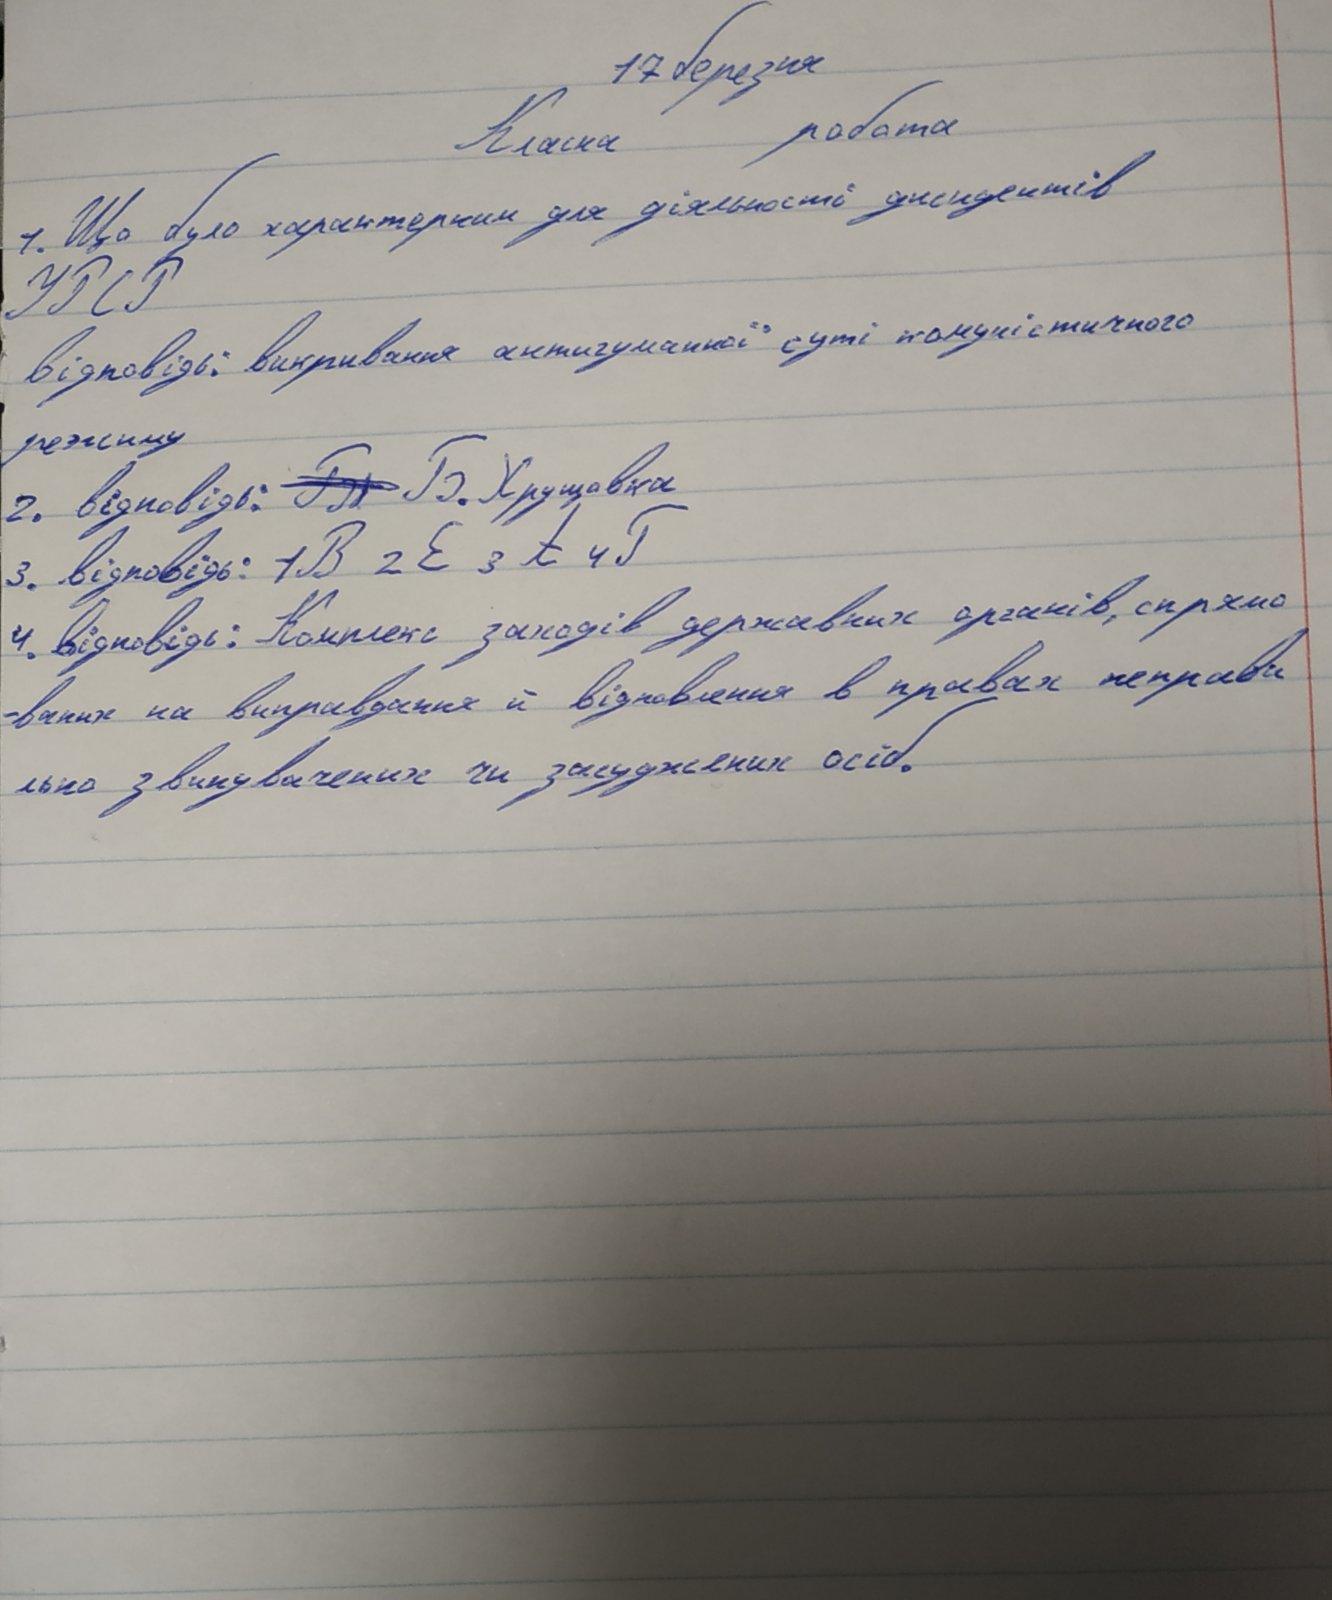 17 березня
Класна робота
1. Що було характерним для діяльності дисидентів
УРСР
відповідь: викривання антигуманної суті комуністичного
режиму
2. відповідь: Б. Хрущовка
3. відповідь: 1В 2Е 3А 4Г
4. Відповідь: Комплекс заходів державних органів, спрямо
-ваних на виправдання й відновлення в правах неправи
льно звинувачених чи засуджених осіб.